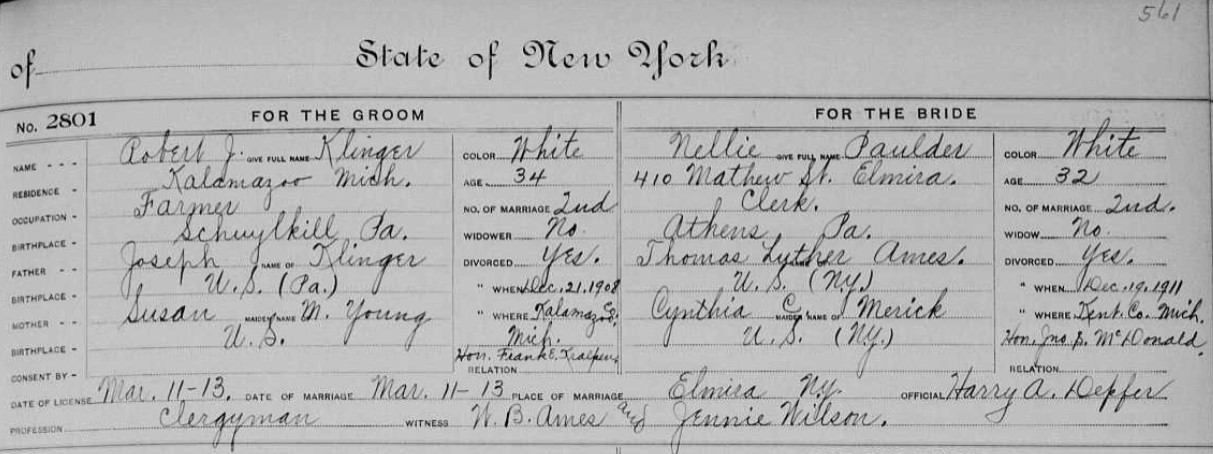 561
of State of New York
No. 2801 FOR THE GROOM FOR THE BRIDE
NAME - - - Robert J. GIVE FULL NAME Klinger COLOR White Nellie GIVE FULL NAME Paulder COLOR White
RESIDENCE - Kalamazoo Mich. AGE 34 410 Mathew St. Elmira. AGE 32
OCCUPATION - Farmer NO. OF MARRIAGE 2nd Clerk. NO. OF MARRIAGE 2nd.
BIRTHPLACE - Schuylkill Pa. WIDOWER No. Athens, Pa. WIDOW No.
FATHER - - Joseph NAME OF Klinger DIVORCED Yes. Thomas Luther Ames. DIVORCED Yes.
BIRTHPLACE - U.S. (Pa.) " WHEN Dec. 21, 1908 U.S. (NY.) " WHEN Dec. 19, 1911
MOTHER - - Susan MAIDEN NAME M. Young " WHERE Kalamazoo Co. Cynthia C. MAIDEN NAME OF Merick " WHERE Kent. Co. Mich.
BIRTHPLACE - U.S. Mich. U.S. (NY.) Hon. Jno. S. McDonald.
CONSENT BY - Hon. Frank E. RELATION RELATION
DATE OF LICENSE Mar. 11-13. DATE OF MARRIAGE Mar. 11-13 PLACE OF MARRIAGE Elmira N.Y. OFFICIAL Harry A. Depfer
PROFESSION Clergyman WITNESS W. B. Ames and Jennie Willson.